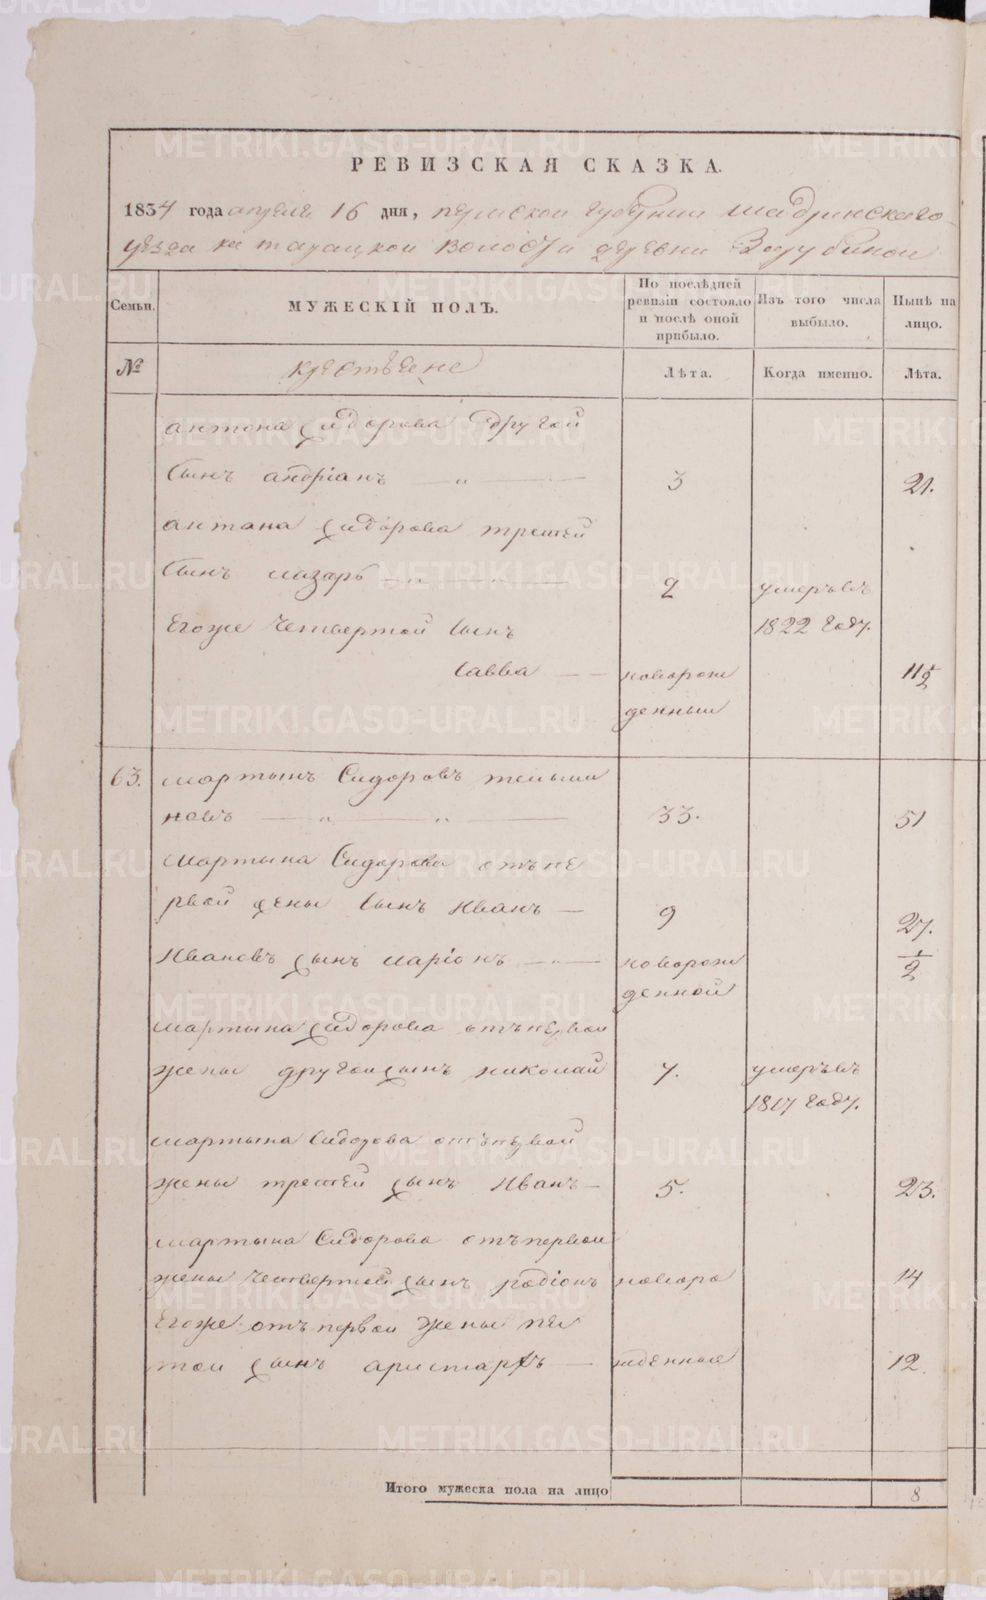 РЕВИЗСКАЯ СКАЗКА.
1834 года апреля 16 дня, пермской губернии шадринскаго
уезда катайцкой волости деревни Зырубиной
Семьи.
МУЖЕСКІЙ ПОЛЪ.
По послѣдней ревизіи состояло и послѣ оной прибыло.
Изъ того числа выбыло.
Нынѣ на лицо.
№
крестьене
Лѣта.
Когда именно.
Лѣта.
антона сидорова другой
сынъ андріанъ 3 21.
антана сидорова третей
сынъ лазарь 2 умеръвъ
Егоже четвертой сынъ 1822 году.
Савва новорож 11½
денныи
63. мартынъ Сидоровъ
новъ 33. 51
Мартына Сидорова отъпе
рвой жены сынъ Иванъ 9 27.
Ивановъ сынъ ларіонъ новорож ½
денной
мартына сидорова отъпервои
жены другои сынъ николай 7. умеръвъ
1817 году.
мартына Сидорова отъпервой
жены третей сынъ Иванъ 5. 23.
мартына Сидорова отъпервои
жены четвертой сынъ родіонъ новоро 14
Егоже отъпервои жены пя
тои сынъ аристархъ жденные 12.
Итого мужеска пола на лицо 8
METRIKI.GASO-URAL.RU